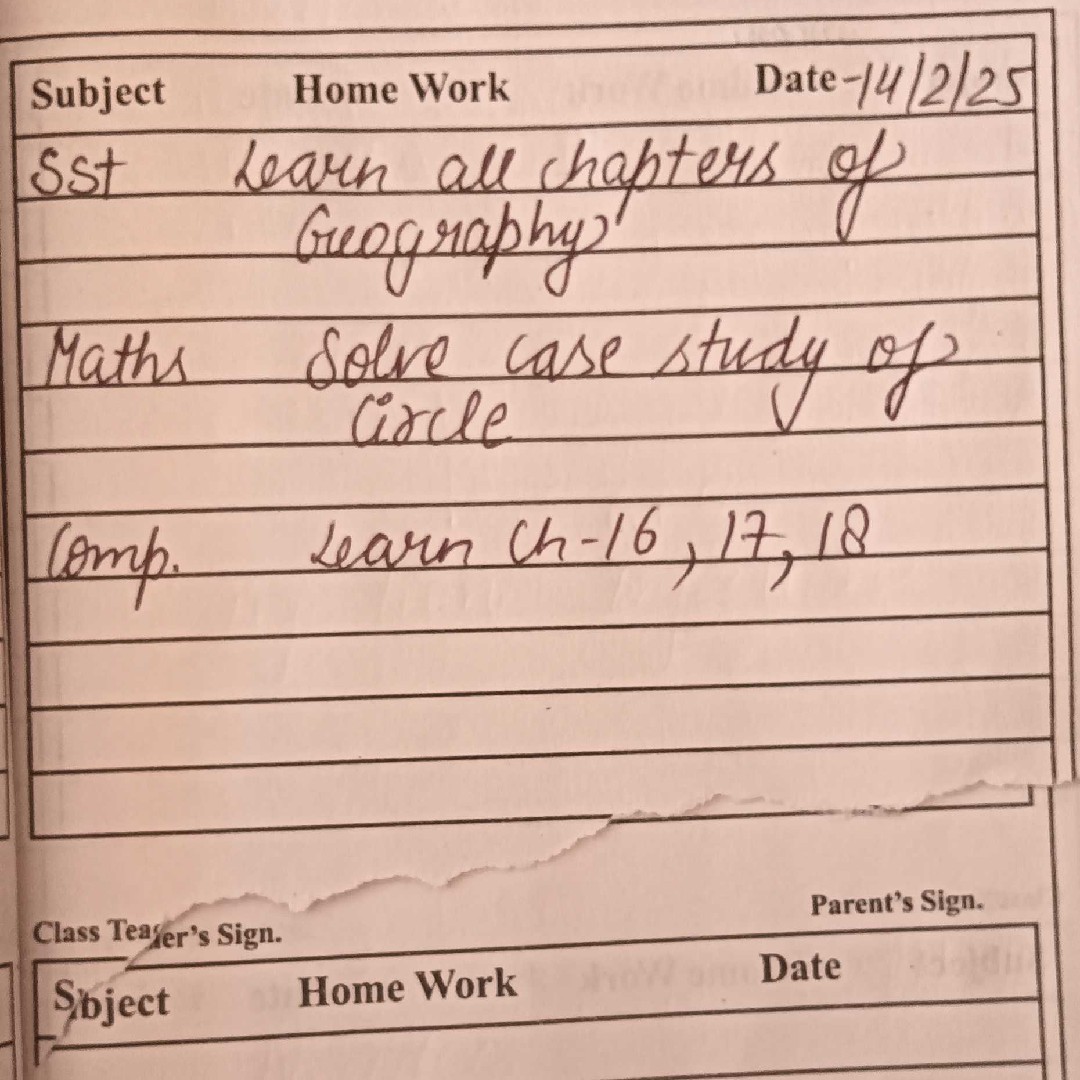 Subject Home Work Date-14/2/25
Sst Learn all chapters of
Geography
Maths Solve case study of
Circle
Comp. Learn Ch-16, 17, 18
Parent's Sign.
Class Teaer's Sign.
Sbject Home Work Date